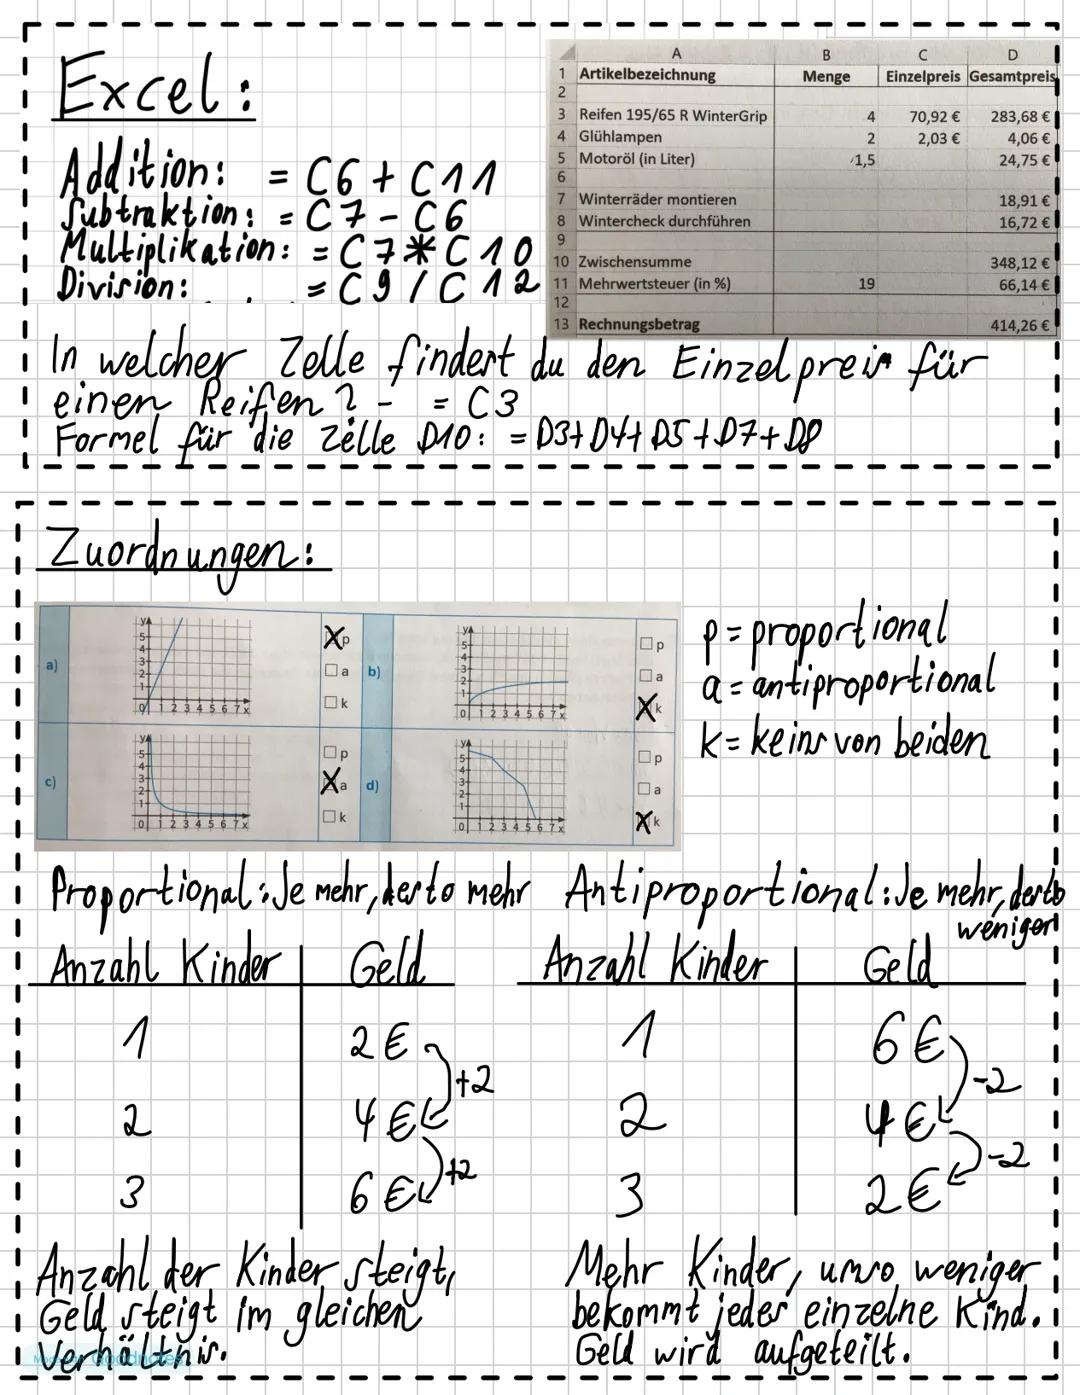 Excel:
Addition: = C6 + C11
Subtraktion: = C7 - C6
Multiplikation: = C7 * C10
Division: = C9 / C12
A B C D
1 Artikelbezeichnung Menge Einzelpreis Gesamtpreis
2
3 Reifen 195/65 R WinterGrip 4 70,92 € 283,68 €
4 Glühlampen 2 2,03 € 4,06 €
5 Motoröl (in Liter) 1,5 24,75 €
6
7 Winterräder montieren 18,91 €
8 Wintercheck durchführen 16,72 €
9
10 Zwischensumme 348,12 €
11 Mehrwertsteuer (in %) 19 66,14 €
12
13 Rechnungsbetrag 414,26 €
In welcher Zelle findest du den Einzelpreis für
einen Reifen? - = C3
Formel für die Zelle D10: = D3+D4+D5+D7+D8
Zuordnungen:
a)
y
5
4
3
2
1
0 1 2 3 4 5 6 7 x
p
a
k
b)
y
5
4
3
2
1
0 1 2 3 4 5 6 7 x
p
a
k
c)
y
5
4
3
2
1
0 1 2 3 4 5 6 7 x
p
a
k
d)
y
5
4
3
2
1
0 1 2 3 4 5 6 7 x
p
a
k
p = proportional
a = antiproportional
k = keins von beiden
Proportional: Je mehr, desto mehr
Anzahl Kinder Geld
1 2€
+2
2 4€
+2
3 6€
Anzahl der Kinder steigt,
Geld steigt im gleichen
Verhältnis.
Antiproportional: Je mehr, desto
weniger
Anzahl Kinder Geld
1 6€
-2
2 4€
-2
3 2€
Mehr Kinder, umso weniger
bekommt jedes einzelne Kind.
Geld wird aufgeteilt.
Goodnotes